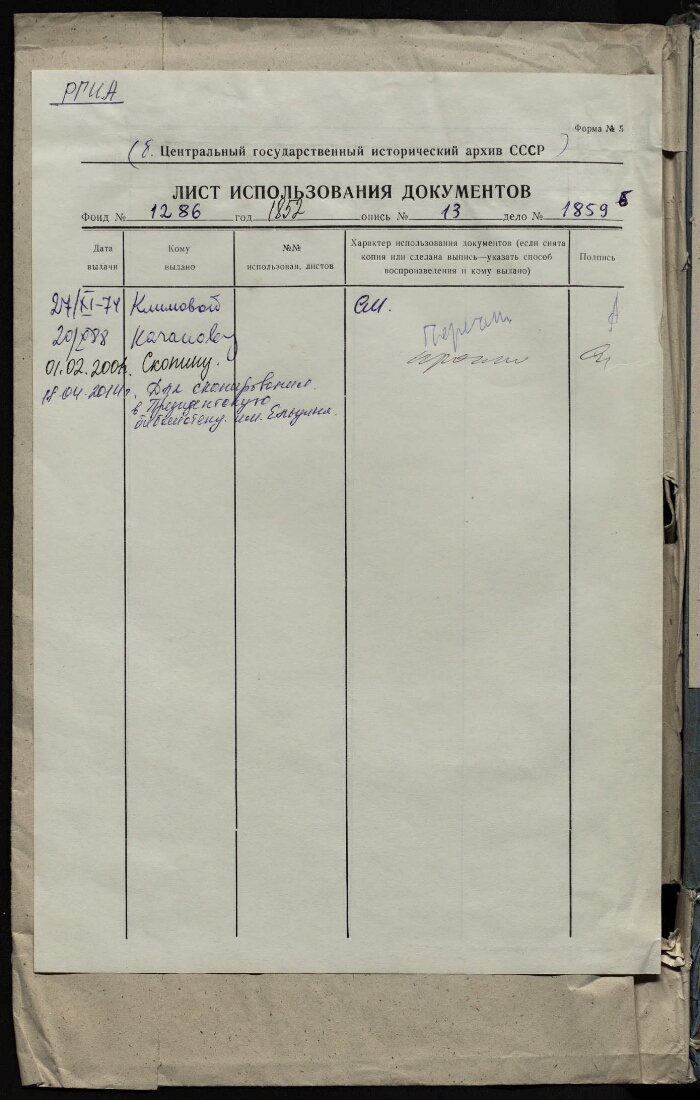 РГИА
Форма № 5
(б. Центральный государственный исторический архив СССР)
ЛИСТ ИСПОЛЬЗОВАНИЯ ДОКУМЕНТОВ
Фонд № 1286 год 1852 опись № 13 дело № 1859 б
Дата выдачи
Кому выдано
№№ использован. листов
Характер использования документов (если снята
копия или сделана выпись—указать способ
воспроизведения и кому выдано)
Подпись
27/XI-74 Климовой см.
20/X88
01.02.2001. Скопину.
18.04.2014г. Для сканирования
в Президентскую
библиотеку им. Ельцина.